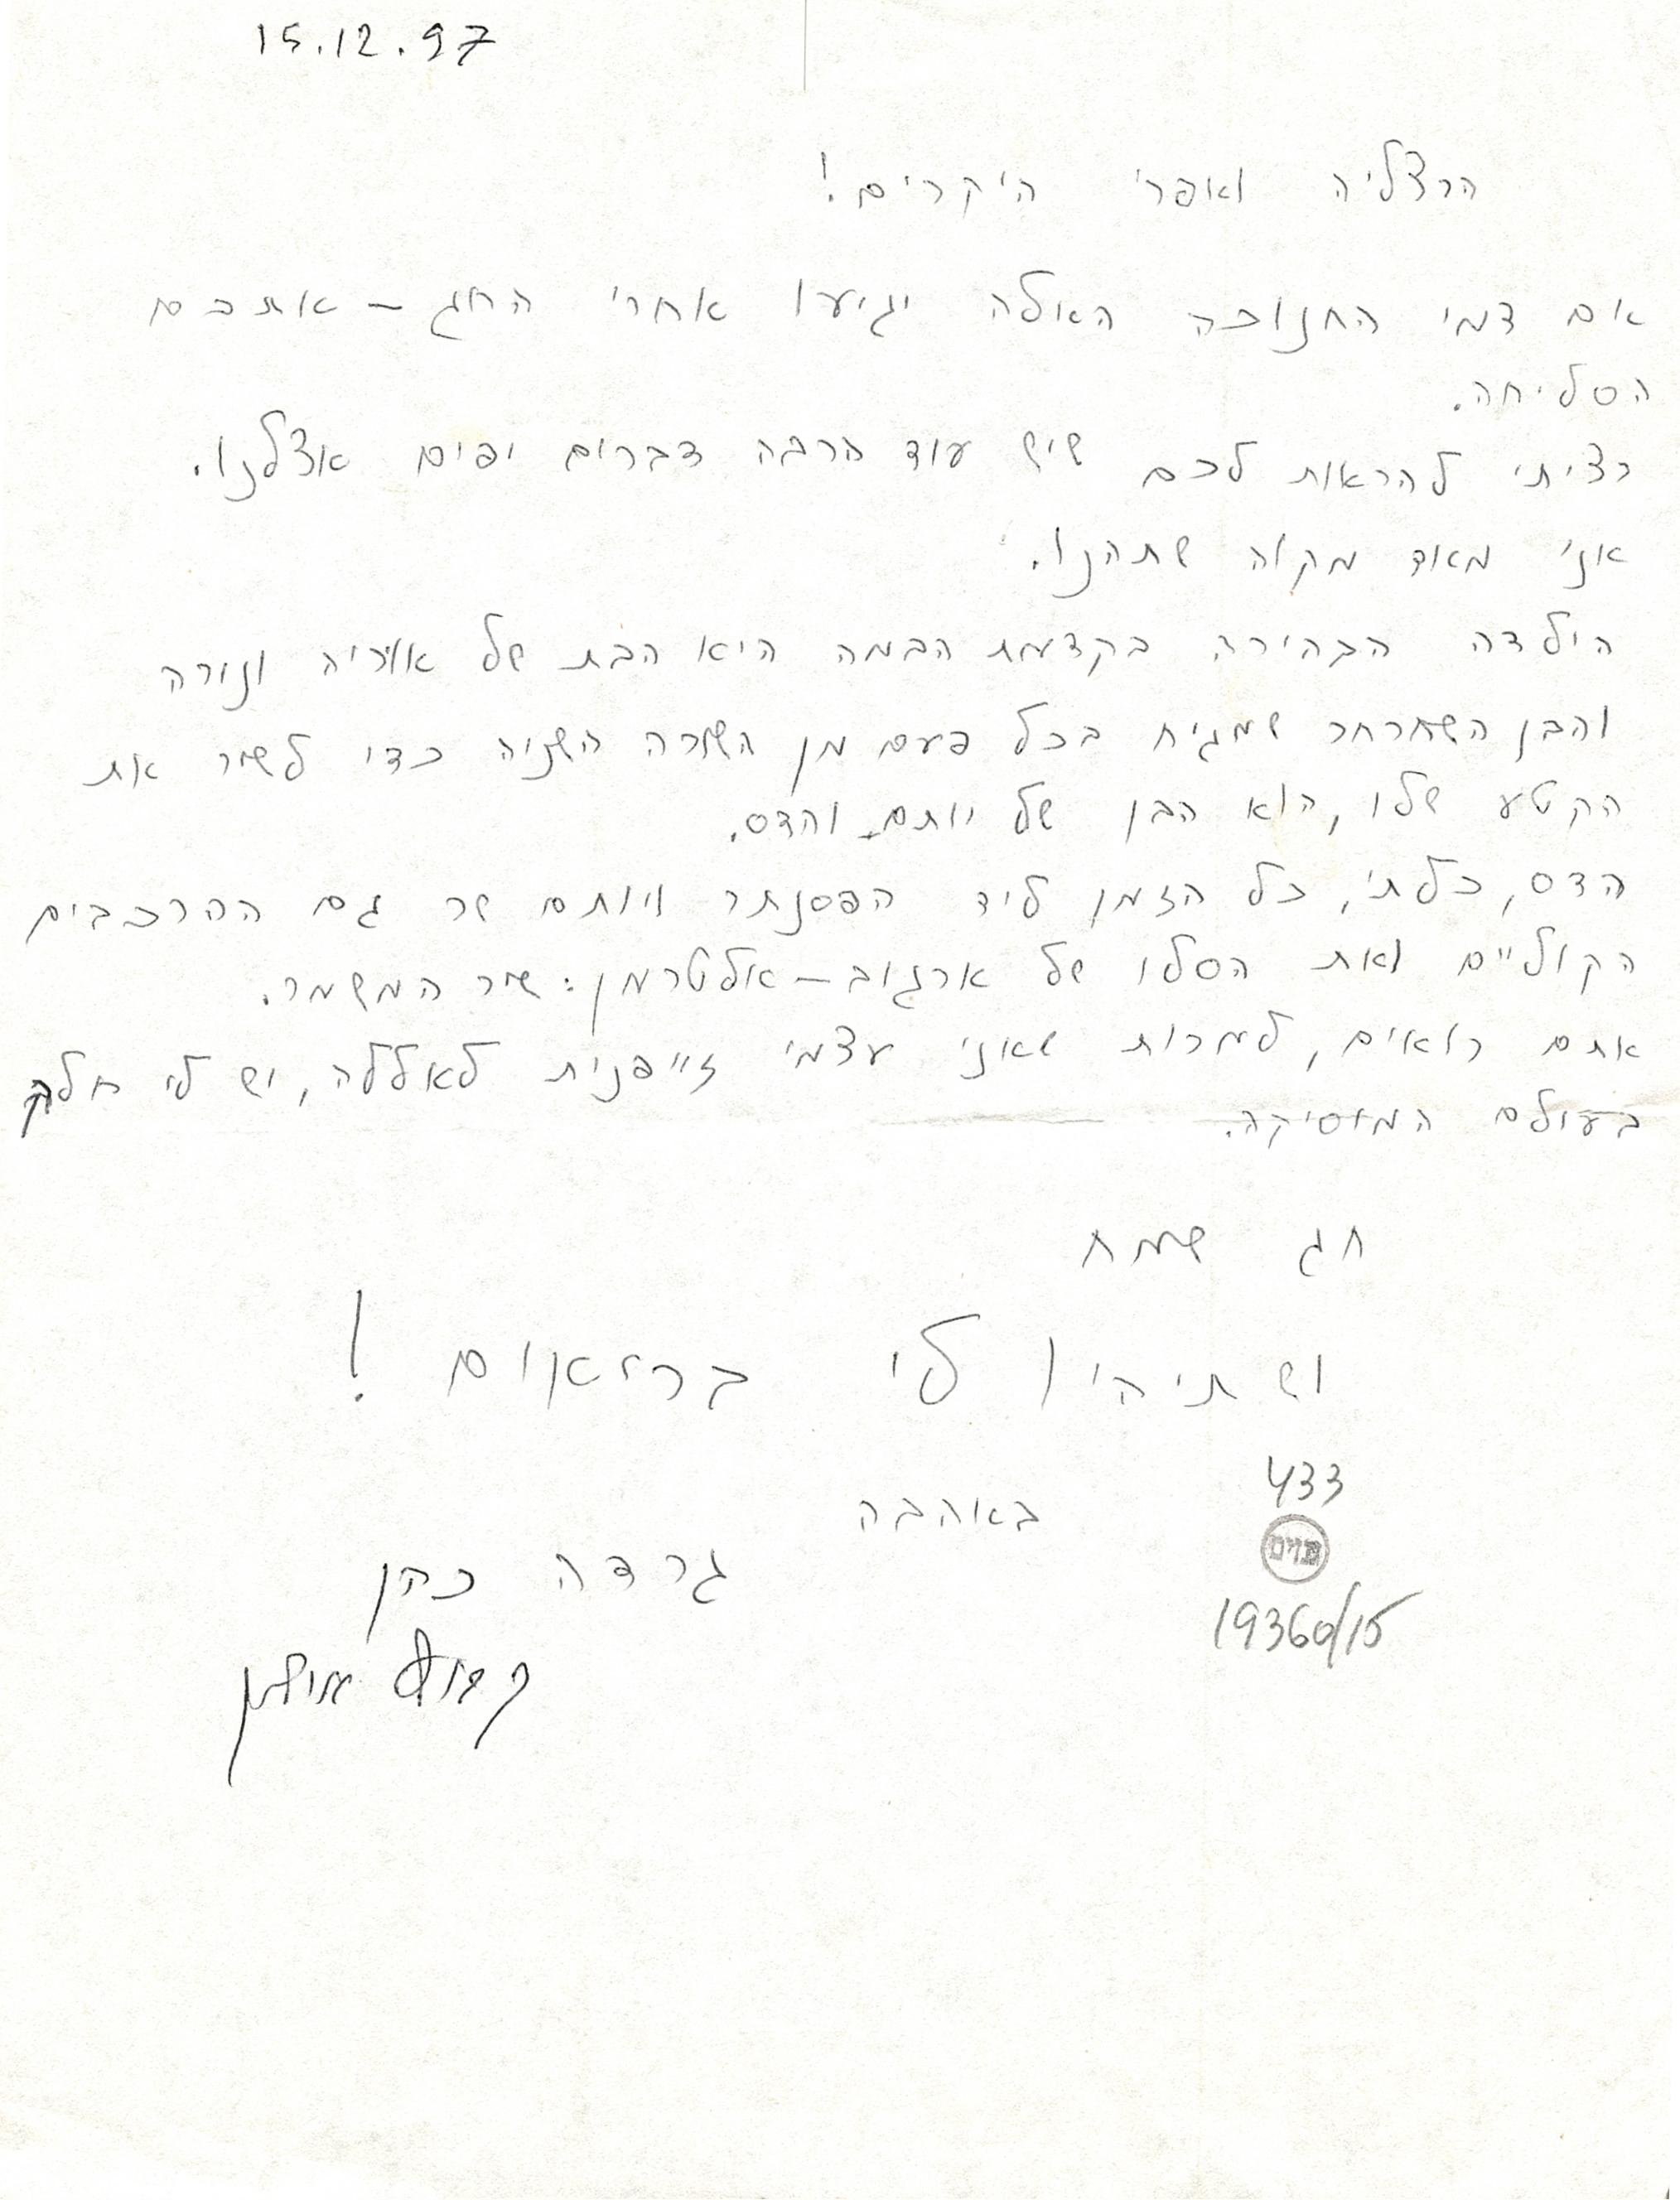 15.12.97
הרצליה ואפרי היקרים!
אם דמי החנוכה האלה יגיעו אחרי החג – אתכם
הסליחה.
רציתי להראות לכם שיש עוד הרבה דברים יפים אצלנו.
אני מאוד מקוה שתהנו.
הילדה הבהירה בקדמת הבמה היא הבת של אוריה ונורה
והבן השחרחר שמגיח בכל פעם מן השורה השניה כדי לשיר את
הקטע שלו, הוא הבן של יותם והדס.
הדס, כלתי, כל הזמן ליד הפסנתר ויותם שר גם ההרכבים
הקוליים ואת הסלו של ארגוב – אלתרמן: שיר המשמר.
אתם רואים, למרות שאני עצמי זייפנית לאללה, יש לי חלק
בעולם המוסיקה.
חג שמח
ושתיהיו לי בריאים!
באהבה
גרדה כהן
קבוץ
433
19360/15